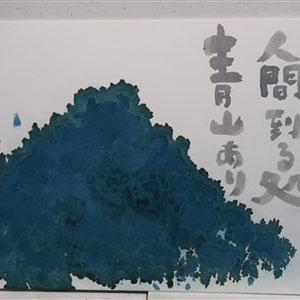 人間到る処
青山あり